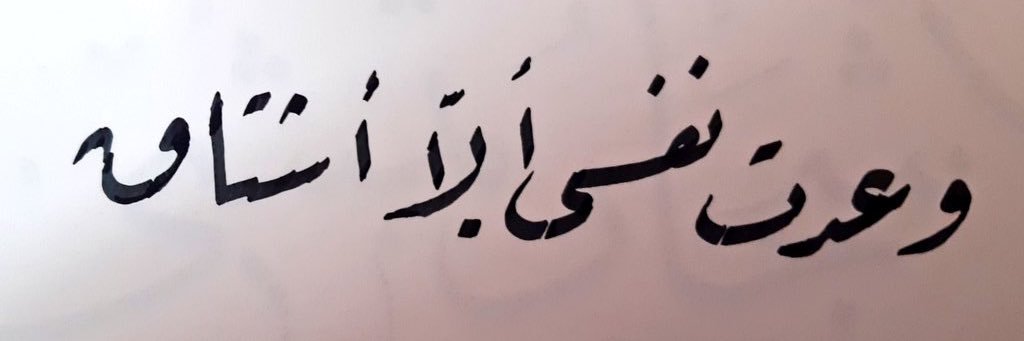 وعدت نفسى ألّا أشتاق